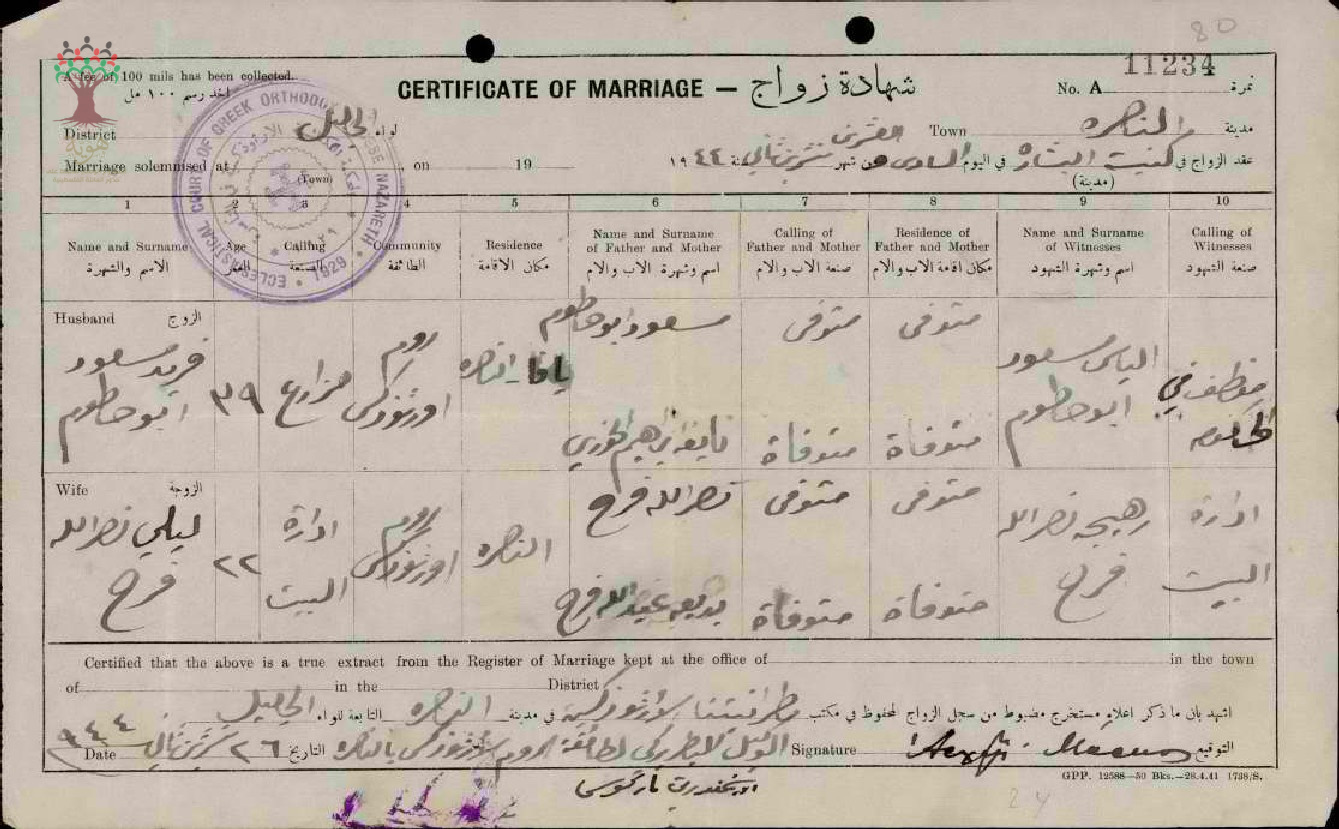 80
11234
A fee of 100 mils has been collected.
اخذ رسم ١٠٠ مل
CERTIFICATE OF MARRIAGE — شهادة زواج
No. A نمرة
District الجليل لواء
Town الناصره مدينة
Marriage solemnised at (Town) , on 19
عقد الزواج في كنيسة البشاره (مدينة) في اليوم السادس والعشرين من شهر تشرين ثاني سنة ١٩٤٤
ECCLESIASTICAL COURT OF GREEK ORTHODOX NAZARETH • 1929 •
1 2 3 4 5 6 7 8 9 10
Name and Surname الاسم والشهرة
Age العمر
Calling الصنعة
Community الطائفة
Residence مكان الاقامة
Name and Surname of Father and Mother اسم وشهرة الاب والام
Calling of Father and Mother صنعة الاب والام
Residence of Father and Mother مكان اقامة الاب والام
Name and Surname of Witnesses اسم وشهرة الشهود
Calling of Witnesses صنعة الشهود
Husband الزوج
فريد مسعود ابو حاطوم
٣٩
مزارع
روم اورثوذكس
يافا - الناصره
مسعود ابو حاطوم
نايفه ابراهيم الخوري
متوفى
متوفاة
متوفى
متوفاة
الياس مسعود ابو حاطوم
موظف في الحكومه
Wife الزوجة
ليلي نصرالله فرح
٢٢
ادارة البيت
روم اورثوذكس
الناصره
نصرالله فرح
بديعه عبدالله فرح
متوفى
متوفاة
متوفى
متوفاة
وهيبه نصرالله فرح
ادارة البيت
Certified that the above is a true extract from the Register of Marriage kept at the office of in the town
of in the District
اشهد بان ما ذكر اعلاه مستخرج مضبوط من سجل الزواج المحفوظ في مكتب مطرانيتنا الاورثوذكسية في مدينة الناصره التابعة للواء الجليل
Date ٢٦ تشرين ثاني ٩٤٤ التاريخ
الوكيل البطريركي لطائفة الروم الاورثوذكس بالناصره
Signature التوقيع
GPP. 12588—50 Bks.—28.4.41 1738/S.
24